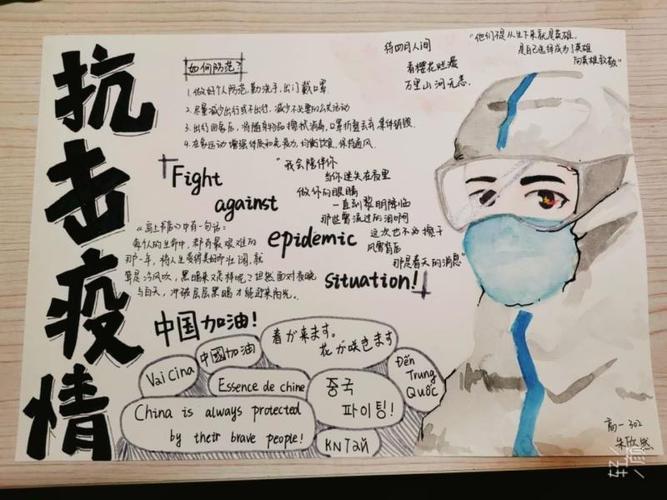 抗击疫情
如何防范?
1. 做好个人防范,勤洗手,出门戴口罩
2. 尽量减少出行或不出行,减少不必要的公共活动
3. 出行回家后,将随身物品擦拭消毒,口罩折叠丢弃集中销毁
4. 在家运动增强体质和免疫力,均衡饮食,保持通风
待四月人间
看樱花烂漫
万里山河无恙.
"他们没从生下来就是英雄
是自己选择成为了英雄
向英雄致敬"
Fight
against
epidemic
situation!
"我会陪伴你
当你迷失在夜里
做你的眼睛
一直到黎明降临
那些曾流过的泪啊
这次也不必掩子
风雪背后
那是春天的消息"
中有一句话:
每个人的生命中,都有最艰难的
那一年,将人生变得美好而辽阔,就
与白天,冲破层层黑暗才能迎来阳光.
中国加油!
中國加油
春が来ます。
花が咲きます
Vai Cina
Essence de chine
중국
파이팅!
Đến
Trung
Quốc
China is always protected
by their brave people!
КИТАЙ
高一302
朱欣然
轻颜